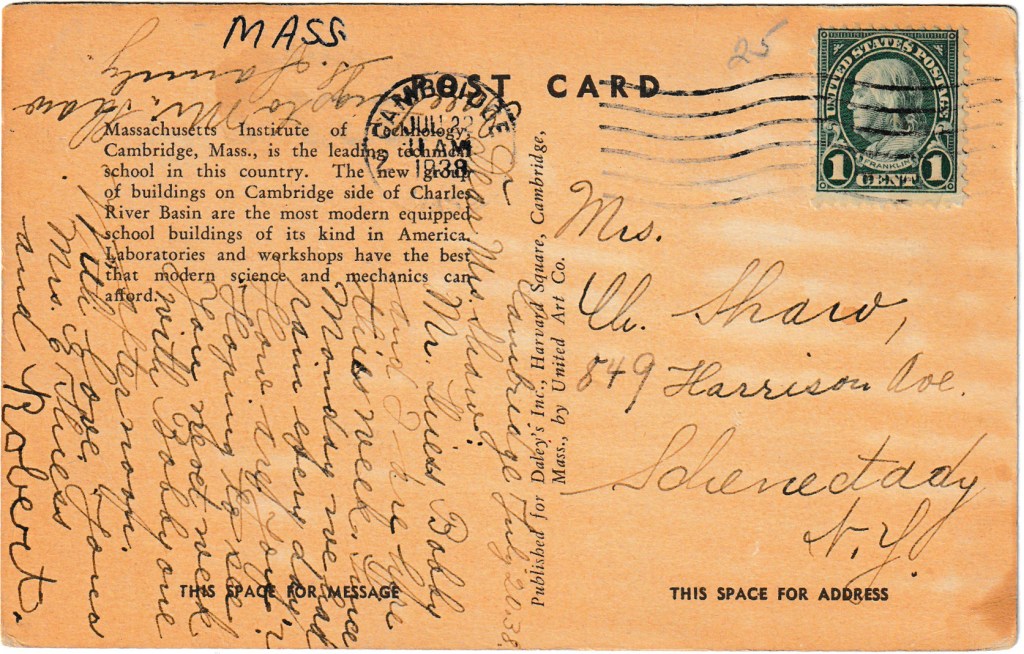 MASS
25
POST CARD
CAMBRIDGE
JUL 22
11 AM
1938
UNITED STATES POSTAGE
FRANKLIN
1 CENT 1
Massachusetts Institute of Technology,
Cambridge, Mass., is the leading technical
school in this country. The new group
of buildings on Cambridge side of Charles
River Basin are the most modern equipped
school buildings of its kind in America.
Laboratories and workshops have the best
that modern science and mechanics can
afford.
Cambridge July 20.38.
Dear Mrs. Shaw:
Mr. Thies Bobby
and I are here
this week. Since
Monday we had
rain every day.
How are you?
Hoping to see
you next week
with Bobby one
afternoon.
With Love, Yours
Mrs. G. Thies
and Robert.
to Mr. Shaw
& family
Published for Daley's Inc., Harvard Square, Cambridge,
Mass., by United Art Co.
Mrs.
Ch. Shaw,
849 Harrison Ave.
Schenectady
N.Y.
THIS SPACE FOR MESSAGE
THIS SPACE FOR ADDRESS